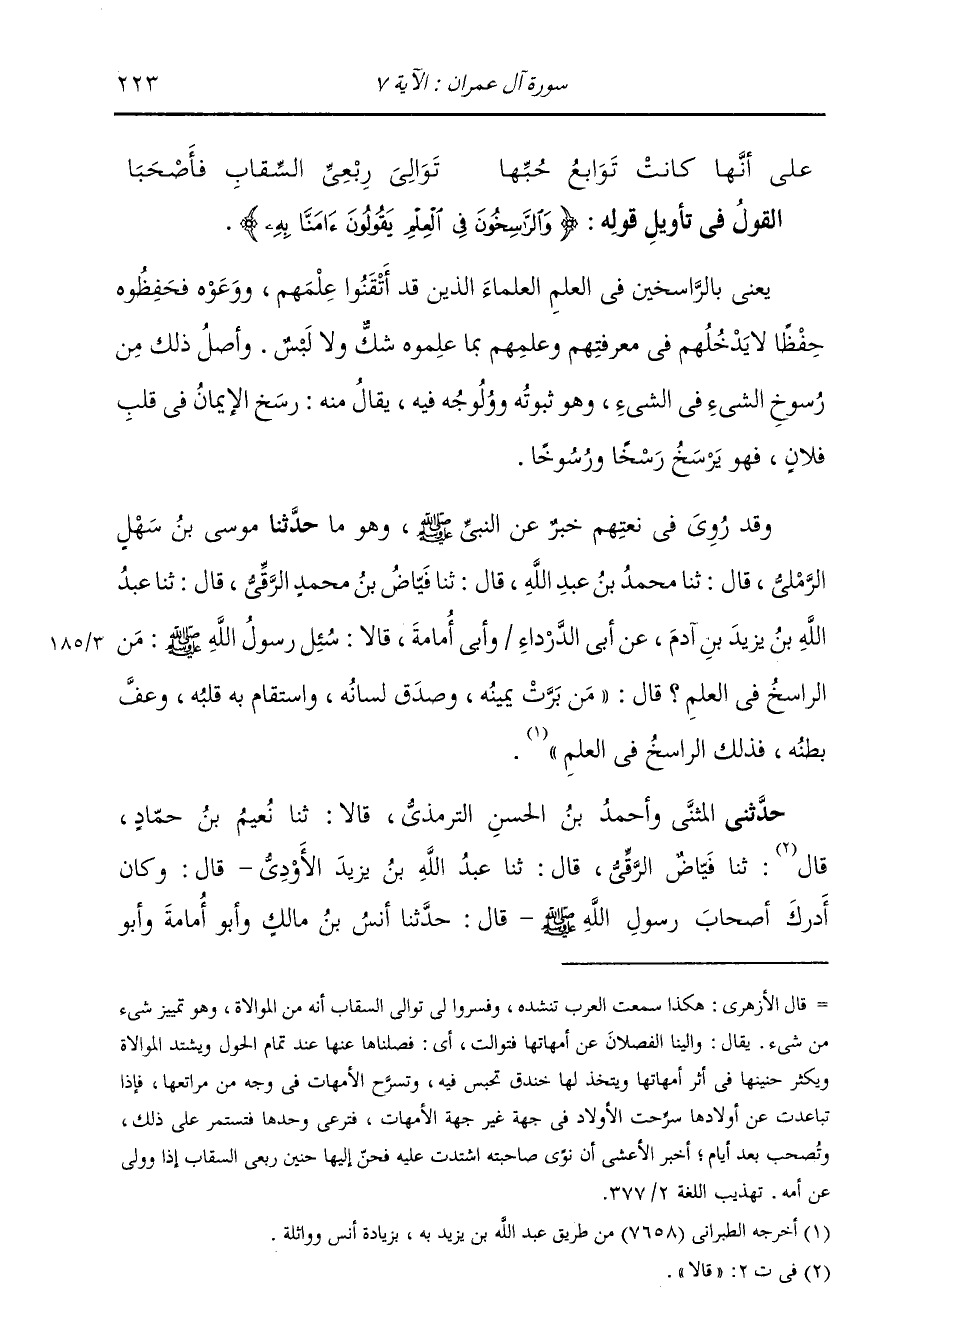 سورة آل عمران : الآية ٧
٢٢٣
على أنَّها كانتْ تَوَابعُ حُبِّها تَوَالِىَ رِبْعِىِّ السِّقابِ فأَصْحَبَا
القولُ فى تأويلِ قولِه : ﴿ وَٱلرَّٰسِخُونَ فِى ٱلْعِلْمِ يَقُولُونَ ءَامَنَّا بِهِۦ ﴾ .
يعنى بالرَّاسخين فى العلمِ العلماءَ الذين قد أَتْقَنُوا عِلْمَهم ، ووَعَوْه فحَفِظُوه
حِفْظًا لا يَدْخُلُهم فى معرفتِهم وعلمِهم بما علِموه شكٌّ ولا لَبْسٌ . وأصلُ ذلك مِن
رُسوخِ الشىءِ فى الشىءِ ، وهو ثبوتُه ووُلُوجُه فيه ، يقالُ منه : رسَخ الإيمانُ فى قلبِ
فلانٍ ، فهو يَرْسَخُ رَسْخًا ورُسُوخًا .
وقد رُوِىَ فى نعتِهم خبرٌ عن النبىِّ ﷺ ، وهو ما حدَّثنا موسى بنُ سَهْلٍ
الرَّمْلىُّ ، قال : ثنا محمدُ بنُ عبدِ اللَّهِ ، قال : ثنا فَيَّاضُ بنُ محمدٍ الرَّقِّىُّ ، قال : ثنا عبدُ
اللَّهِ بنُ يزيدَ بنِ آدمَ ، عن أبى الدَّرْداءِ / وأبى أُمامةَ ، قالا : سُئِل رسولُ اللَّهِ ﷺ : مَن
١٨٥/٣
الراسخُ فى العلمِ ؟ قال : « مَن بَرَّتْ يمينُه ، وصدَق لسانُه ، واستقام به قلبُه ، وعفَّ
بطنُه ، فذلك الراسخُ فى العلمِ »(١) .
حدَّثنى المثنَّى وأحمدُ بنُ الحسنِ الترمذىُّ ، قالا : ثنا نُعيمُ بنُ حمَّادٍ ،
قال(٢) : ثنا فَيَّاضٌ الرَّقِّىُّ ، قال : ثنا عبدُ اللَّهِ بنُ يزيدَ الأَوْدِىُّ - قال : وكان
أَدركَ أصحابَ رسولِ اللَّهِ ﷺ - قال : حدَّثنا أنسُ بنُ مالكٍ وأبو أُمامةَ وأبو
= قال الأزهرى : هكذا سمعت العرب تنشده ، وفسروا لى توالى السقاب أنه من الموالاة ، وهو تمييز شىء
من شىء . يقال : والينا الفصلانَ عن أمهاتها فتوالت ، أى : فصلناها عنها عند تمام الحول ويشتد الموالاة
ويكثر حنينها فى أثر أمهاتها ويتخذ لها خندق تحبس فيه ، وتسرَّح الأمهات فى وجه من مراتعها ، فإذا
تباعدت عن أولادها سرِّحت الأولاد فى جهة غير جهة الأمهات ، فترعى وحدها فتستمر على ذلك ،
وتُصحب بعد أيام ؛ أخبر الأعشى أن نوَى صاحبته اشتدت عليه فحنّ إليها حنين ربعى السقاب إذا وولى
عن أمه . تهذيب اللغة ٢/ ٣٧٧.
(١) أخرجه الطبرانى (٧٦٥٨) من طريق عبد اللَّه بن يزيد به ، بزيادة أنس وواثلة .
(٢) فى ت ٢: « قالا » .